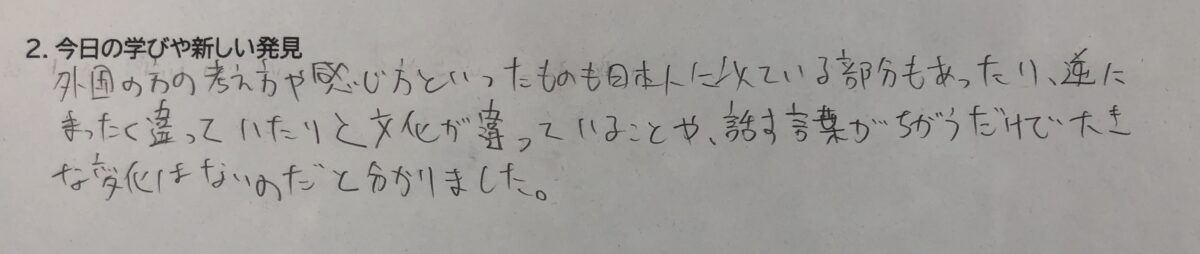 2. 今日の学びや新しい発見
外国の方の考え方や感じ方といったものも日本人に似ている部分もあったり、逆に
まったく違っていたりと文化が違っていることや、話す言葉がちがうだけで大き
な変化はないのだと分かりました。